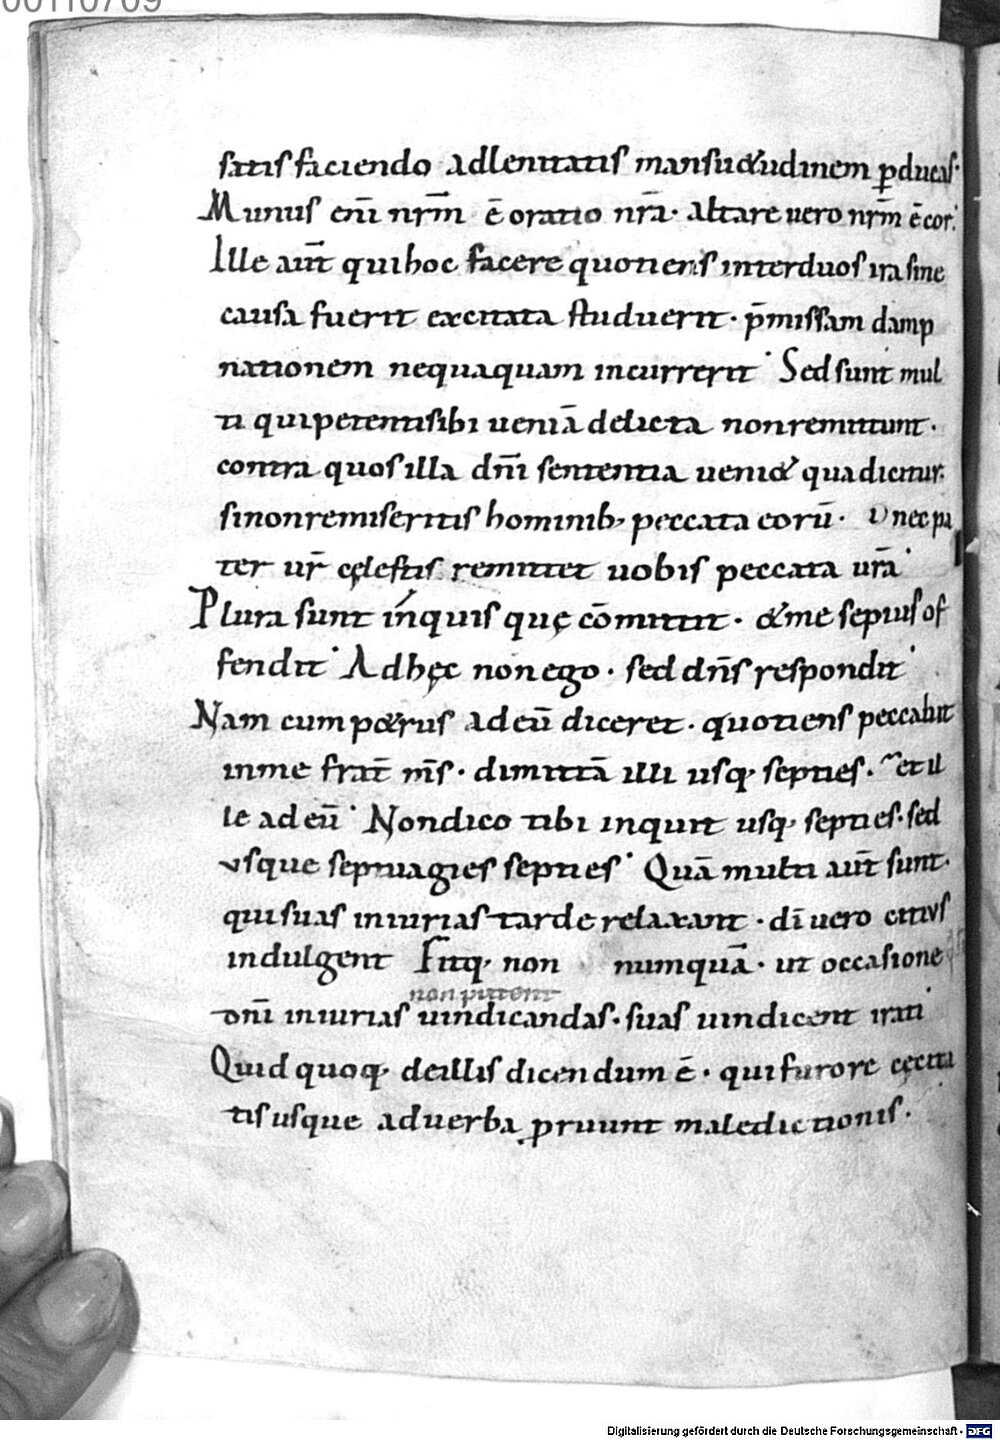 00110709
satisfaciendo adlenitatis mansu&udinem ꝑducas·
Munus eni͞ nr͞m ē oratio nr͞a· altare uero nr͞m ē cor.
Ille aut͞ quihoc facere quotiens interduos ira sine
causa fuerit excitata studuerit· p͞missam damp
nationem nequaquam incurrerit· Sed sunt mul
ti quipetentisibi ueniā delicta nonremittunt·
contra quos illa dn͞i sententia ueni& qua dicitur.
sinonremiseritis hominib; peccata eorū· Nec pa
ter ur͞ cęlestis remittet uobis peccata ur͞a·
Plura sunt inquis quę cōmittit· &me sepius of
fendit· Adhęc non ego· sed dn͞s respondit·
Nam cum p&rus ad eū diceret· quotiens peccabit
inme frat͞ m͞s· dimittā illi usq; septies· et il
le ad eū· Nondico tibi inquit usq; septies· sed
usque septuagies septies· Quā multi aut͞ sunt·
qui suas iniurias tarde relaxant· di͞ uero citius
indulgent Fitq; non numquā· ut occasione
non putent
dn͞i iniurias uindicandas· suas uindicent irati·
Quid quoq; deillis dicendum ē· qui furore cęcita
tis usque aduerba ꝓruunt maledictionis·
Digitalisierung gefördert durch die Deutsche Forschungsgemeinschaft - DFG